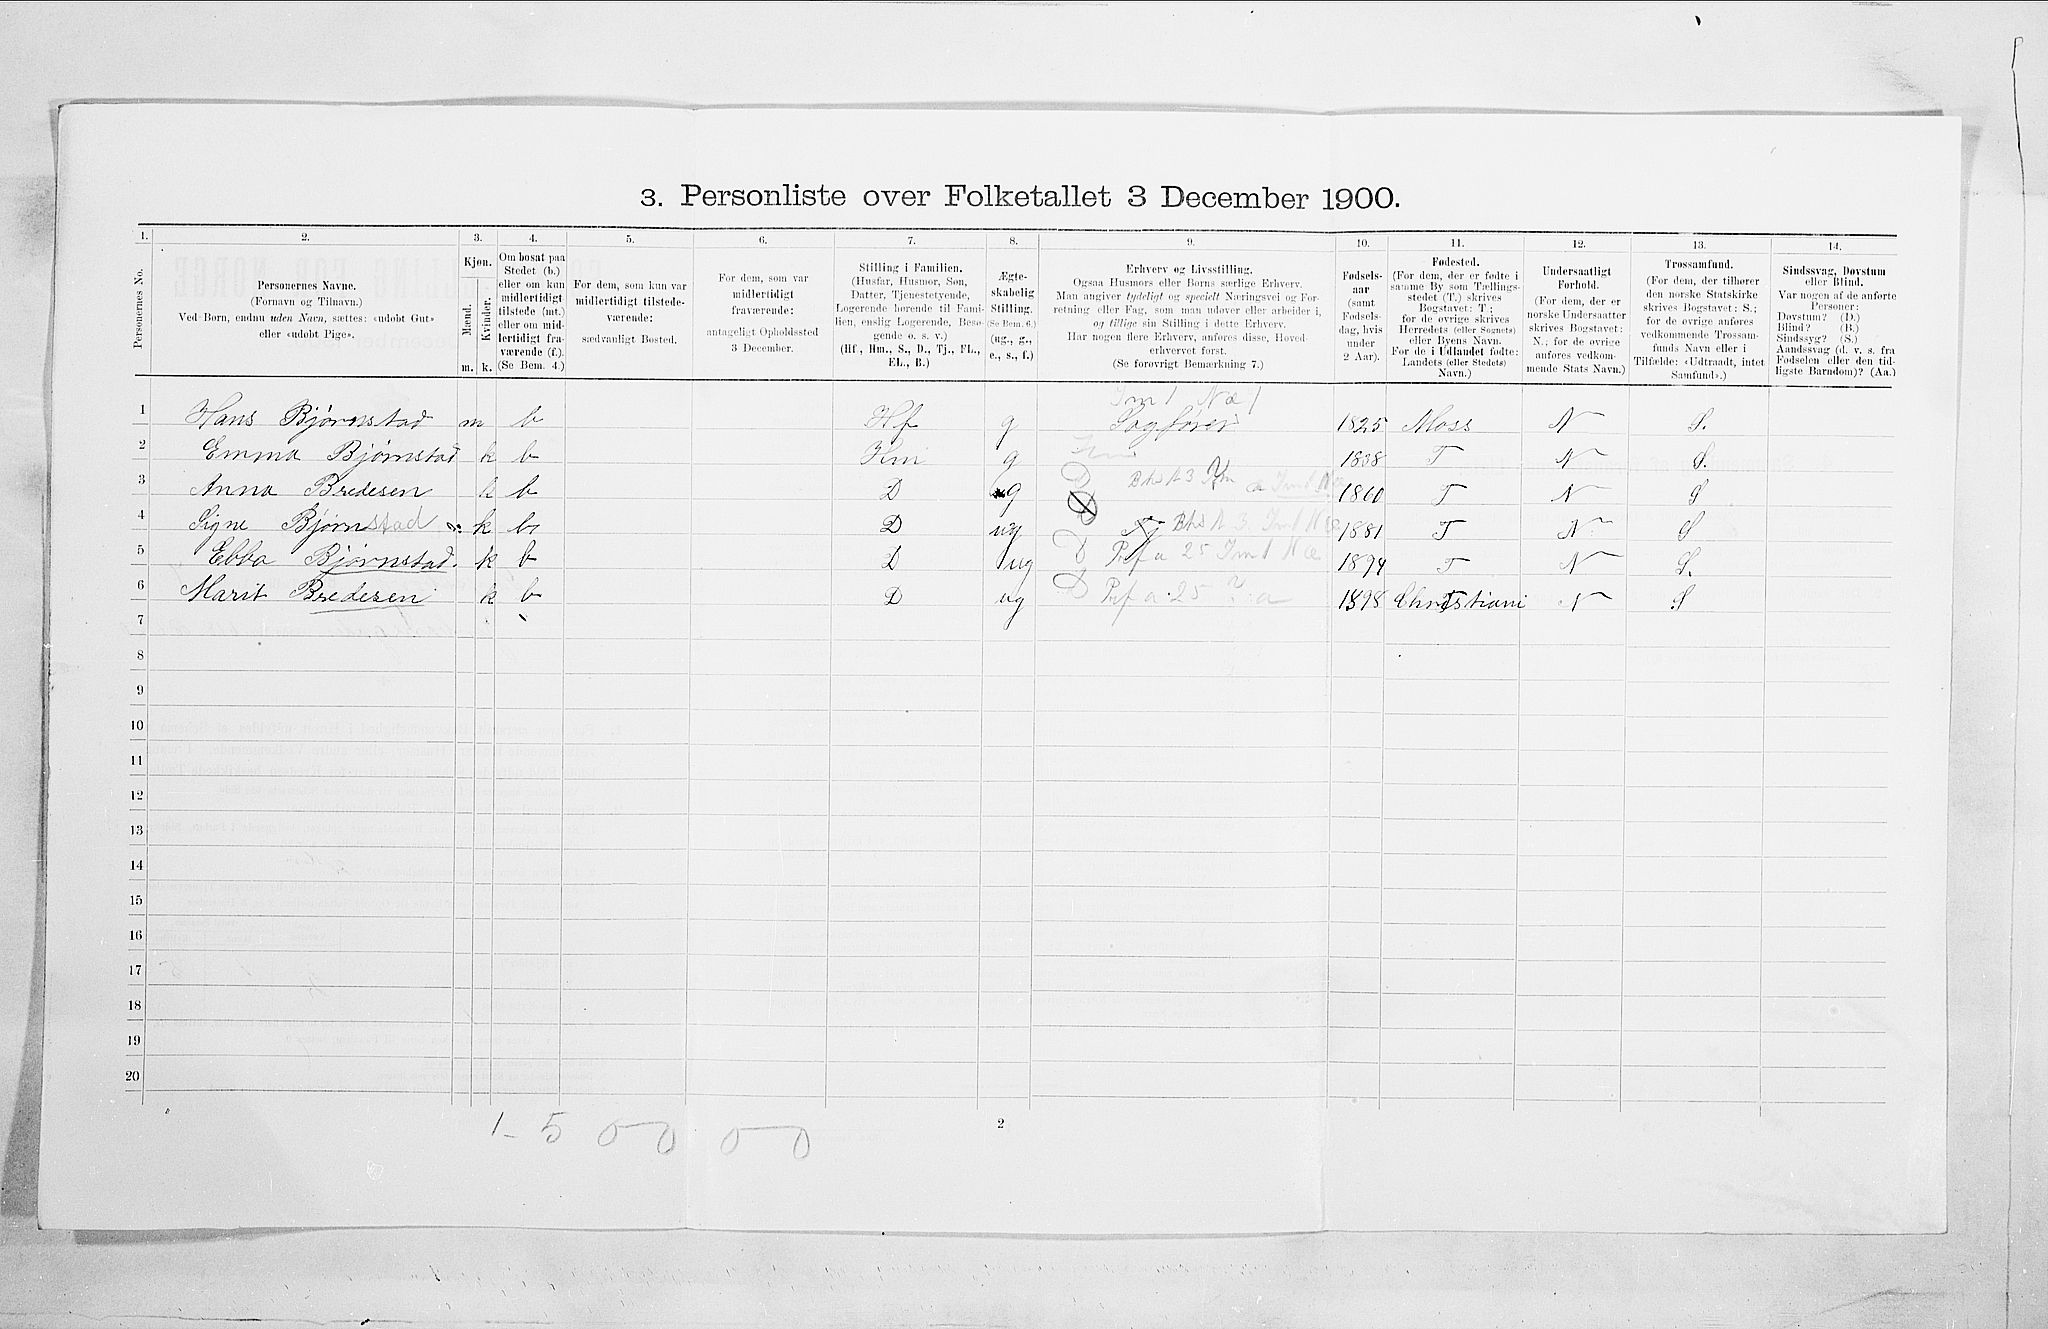 3. Personliste over Folketallet 3 December 1900.
1. 2. 3. 4. 5. 6. 7. 8. 9. 10. 11. 12. 13. 14.
Personernes No.
Personernes Navne.
(Fornavn og Tilnavn.)
Ved Børn, endnu uden Navn, sættes: «udøbt Gut»
eller «udøbt Pige».
Kjøn.
Mænd. Kvinder.
m. k.
Om bosat paa
Stedet (b.)
eller om kun
midlertidigt
tilstede (mt.)
eller om mid-
lertidigt fra-
værende (f.).
(Se Bem. 4.)
For dem, som kun var
midlertidigt tilstede-
værende:
sædvanligt Bosted.
For dem, som var
midlertidigt
fraværende:
antageligt Opholdssted
3 December.
Stilling i Familien.
(Husfar, Husmor, Søn,
Datter, Tjenestetyende,
Logerende hørende til Fami-
lien, enslig Logerende, Besø-
gende o. s. v.)
(Hf, Hm., S., D., Tj., FL.,
EL., B.)
Ægte-
skabelig
Stilling.
(Se Bem. 6.)
(ug., g.,
e., s., f.)
Erhverv og Livsstilling.
Ogsaa Husmors eller Børns særlige Erhverv.
Man angiver tydeligt og specielt Næringsvei og For-
retning eller Fag, som man udøver eller arbeider i,
og tillige sin Stilling i dette Erhverv.
Har nogen flere Erhverv, anføres disse, Hoved-
erhvervet først.
(Se forøvrigt Bemærkning 7.)
Fødsels-
aar
(samt
Fødsels-
dag, hvis
under
2 Aar).
Fødested.
(For dem, der er fødte i
samme By som Tællings-
stedet (T.) skrives
Bogstavet: T;
for de øvrige skrives
Herredets (eller Sognets)
eller Byens Navn.
For de i Udlandet fødte:
Landets (eller Stedets)
Navn.)
Undersaatligt
Forhold.
(For dem, der er
norske Undersaatter
skrives Bogstavet:
N.; for de øvrige
anføres vedkom-
mende Stats Navn.)
Trossamfund.
(For dem, der tilhører
den norske Statskirke
skrives Bogstavet: S.;
for de øvrige anføres
vedkommende Trossam-
funds Navn eller i
Tilfælde: «Udtraadt, intet
Samfund».)
Sindssvag, Døvstum
eller Blind.
Var nogen af de anførte
Personer:
Døvstum? (D.)
Blind? (B.)
Sindssyg? (S.)
Aandssvag (d. v. s. fra
Fødselen eller den tid-
ligste Barndom)? (Aa.)
1 Hans Bjørnstad m b Hf g Sagfører 1825 Moss N S.
2 Emma Bjørnstad k b Hm g 1838 T N S.
3 Anna Bredesen k b D g 1860 T N S
4 Signe Bjørnstad k b D ug 1881 T N S
5 Ebba Bjørnstad. k b D ug 1894 T N S.
6 Marit Bredesen k b D ug 1898 Christiani N S
7
8
9
10
11
12
13
14
15
16
17
18
19
20
1-5 0 0 0 0
2